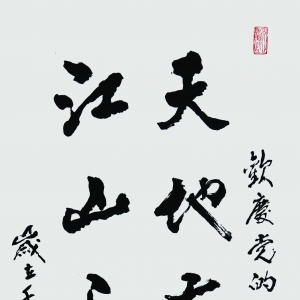 歡慶党的
天地
江山
歲在